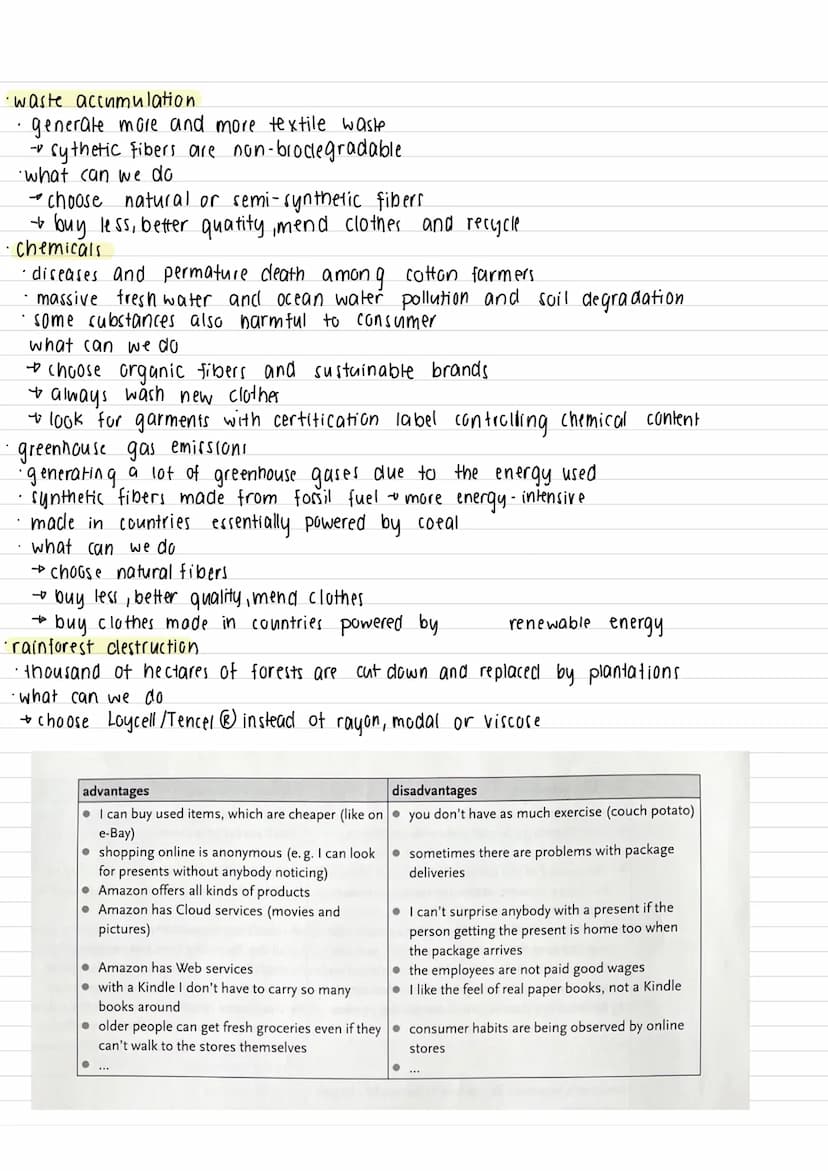 · waste accumulation
· generate more and more textile waste
→ sythetic fibers are non-biodegradable
· what can we do
→ choose natural or semi-synthetic fibers
→ buy less, better quatity, mend clothes and recycle
· chemicals
· diseases and permature death among cotton farmers
· massive fresh water and ocean water pollution and soil degradation
· some substances also harmful to consumer
what can we do
→ choose organic fibers and sustainable brands
→ always wash new clothes
→ look for garments with certification label controlling chemical content
· greenhouse gas emissions
· generating a lot of greenhouse gases due to the energy used
· synthetic fibers made from fossil fuel → more energy-intensive
· made in countries essentially powered by coeal
· what can we do
→ choose natural fibers
→ buy less, better quality, mend clothes
→ buy clothes made in countries powered by renewable energy
· rainforest destruction
· thousand of hectares of forests are cut down and replaced by plantations
· what can we do
→ choose Loycell/Tencel ® instead of rayon, modal or viscose
advantages
• I can buy used items, which are cheaper (like on
e-Bay)
• shopping online is anonymous (e. g. I can look
for presents without anybody noticing)
• Amazon offers all kinds of products
• Amazon has Cloud services (movies and
pictures)
• Amazon has Web services
• with a Kindle I don't have to carry so many
books around
• older people can get fresh groceries even if they
can't walk to the stores themselves
• ...
disadvantages
• you don't have as much exercise (couch potato)
• sometimes there are problems with package
deliveries
• I can't surprise anybody with a present if the
person getting the present is home too when
the package arrives
• the employees are not paid good wages
• I like the feel of real paper books, not a Kindle
• consumer habits are being observed by online
stores
• ...